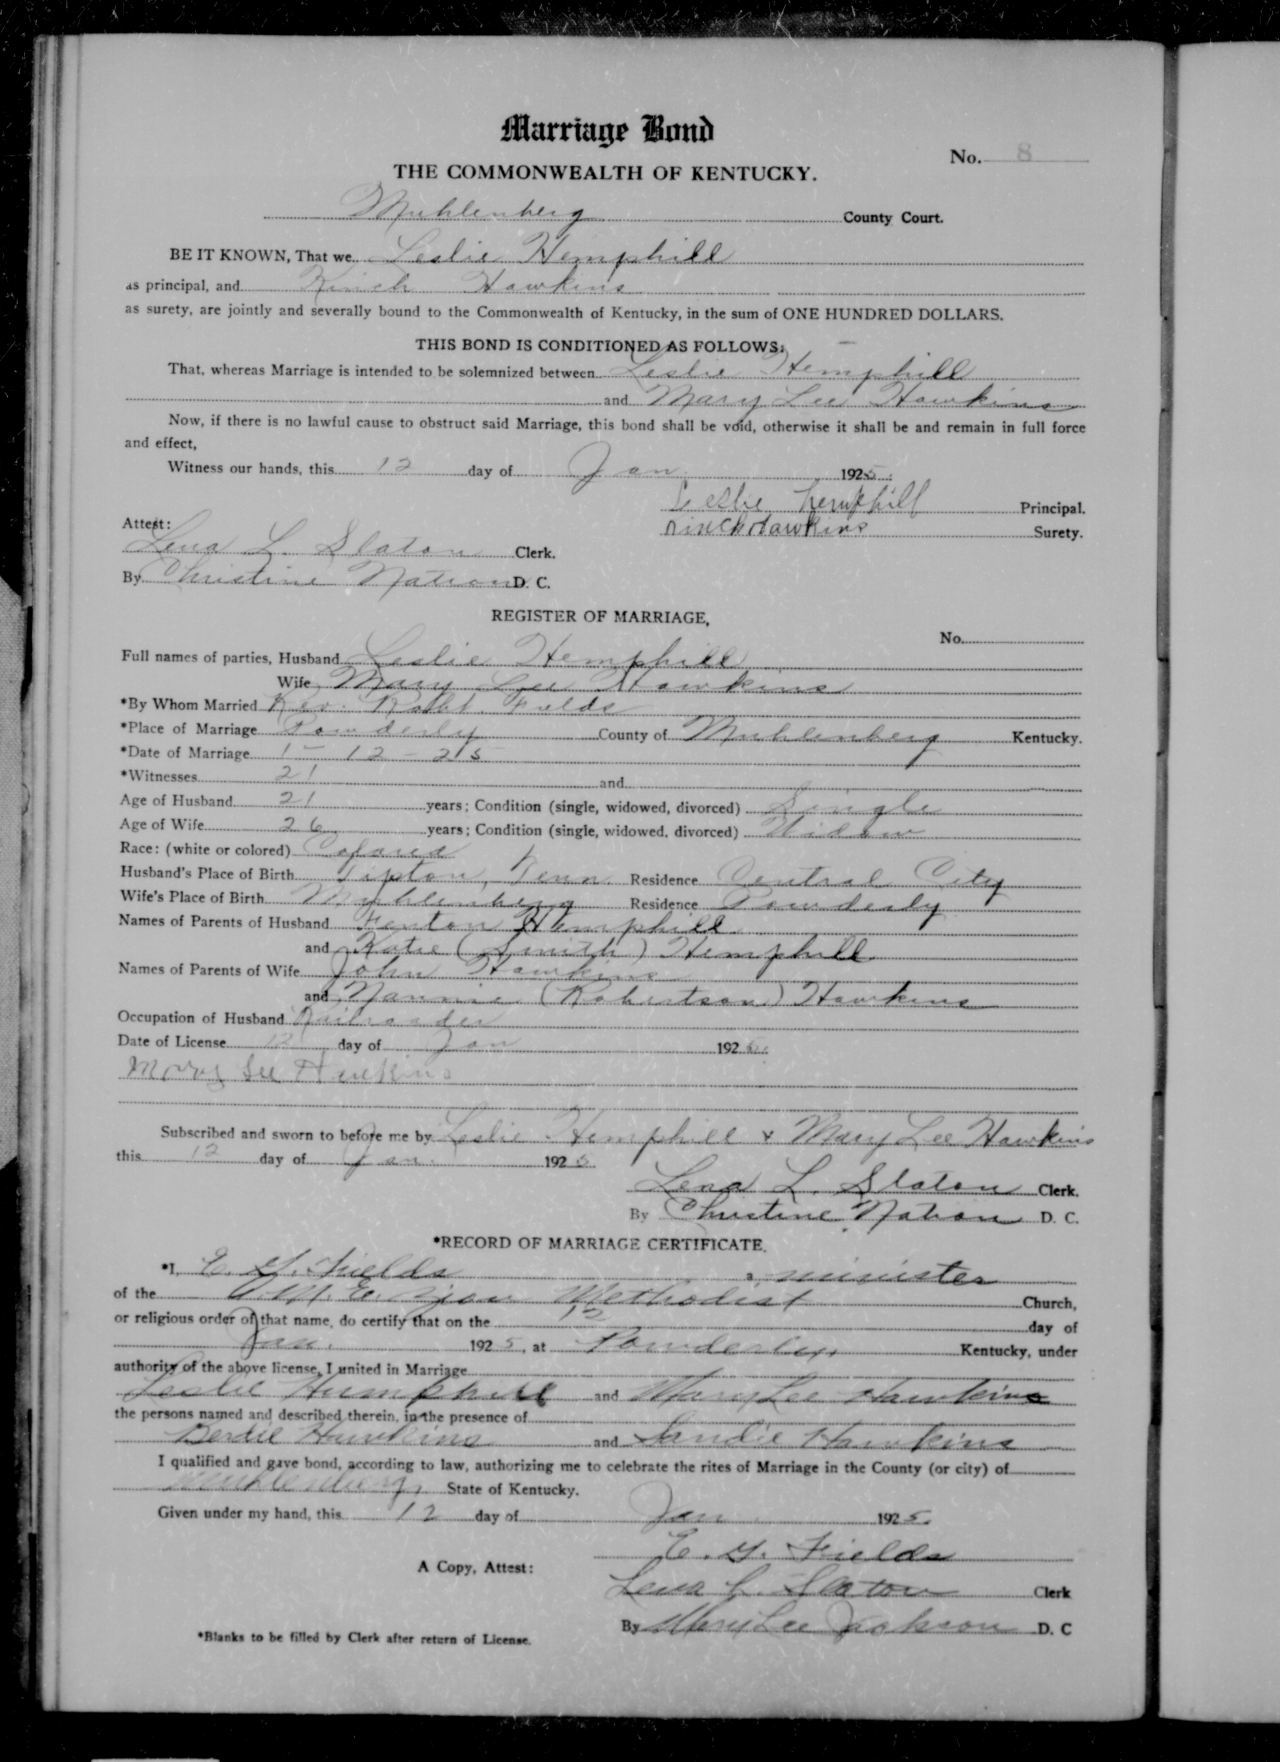 Marriage Bond
No. 8
THE COMMONWEALTH OF KENTUCKY.
Muhlenberg County Court.
BE IT KNOWN, That we Leslie Hemphill
as principal, and Kinch Hawkins
as surety, are jointly and severally bound to the Commonwealth of Kentucky, in the sum of ONE HUNDRED DOLLARS.
THIS BOND IS CONDITIONED AS FOLLOWS:
That, whereas Marriage is intended to be solemnized between Leslie Hemphill
and Mary Lee Hawkins
Now, if there is no lawful cause to obstruct said Marriage, this bond shall be void, otherwise it shall be and remain in full force
and effect,
Witness our hands, this 12 day of Jan 1925.
Leslie Hemphill Principal.
Attest: Kinch Hawkins Surety.
Lena L. Slaton Clerk.
By Christine Nation D. C.
REGISTER OF MARRIAGE,
No.
Full names of parties, Husband Leslie Hemphill
Wife Mary Lee Hawkins
*By Whom Married Rev. Fields
*Place of Marriage Powderly County of Muhlenberg Kentucky.
*Date of Marriage 1-12-25
*Witnesses 21 and
Age of Husband 21 years; Condition (single, widowed, divorced) Single
Age of Wife 26 years; Condition (single, widowed, divorced) Widow
Race: (white or colored) Colored
Husband's Place of Birth Tipton, Tenn. Residence Central City
Wife's Place of Birth Muhlenberg Residence Powderly
Names of Parents of Husband Fenton Hemphill
and Katie (Smith) Hemphill
Names of Parents of Wife John Hawkins
and Nannie (Robertson) Hawkins
Occupation of Husband Railroader
Date of License 12 day of Jan 1925.
Mary Lee Hawkins
Subscribed and sworn to before me by Leslie Hemphill & Mary Lee Hawkins
this 12 day of Jan. 1925
Lena L. Slaton Clerk.
By Christine Nation D. C.
*RECORD OF MARRIAGE CERTIFICATE.
*I, E. G. Fields a minister
of the A. M. E. Zion Methodist Church,
or religious order of that name, do certify that on the 12 day of
Jan. 1925, at Powderly, Kentucky, under
authority of the above license, I united in Marriage
Leslie Humphill and Mary Lee Hawkins
the persons named and described therein, in the presence of
Berdie Hawkins and Sandie Hawkins
I qualified and gave bond, according to law, authorizing me to celebrate the rites of Marriage in the County (or city) of
Muhlenberg, State of Kentucky.
Given under my hand, this 12 day of Jan 1925.
E. G. Fields
A Copy, Attest: Lena L. Slaton Clerk
By Mary Lee Jackson D. C
*Blanks to be filled by Clerk after return of License.